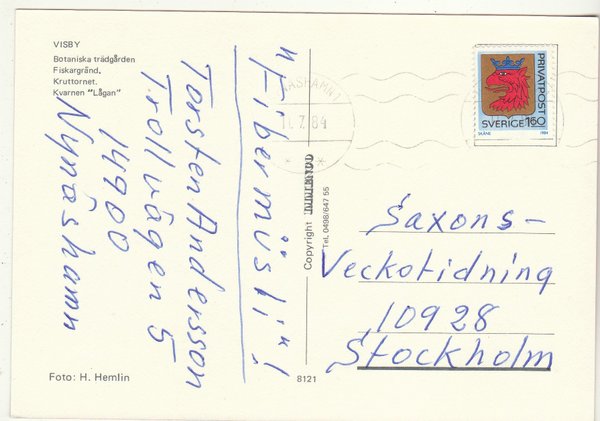 VISBY
Botaniska trädgården
Fiskargränd.
Kruttornet.
Kvarnen "Lågan"
"Fibermüsli"!
Torsten Andersson
Trollvägen 5
14900
Nynäshamn
Foto: H. Hemlin
Copyright
Tel. 0498/647 55
8121
NÄSHAMN 1
11.7.84
PRIVATPOST
SVERIGE 160
SKÅNE 1984
Saxons-
Veckotidning
10928
Stockholm